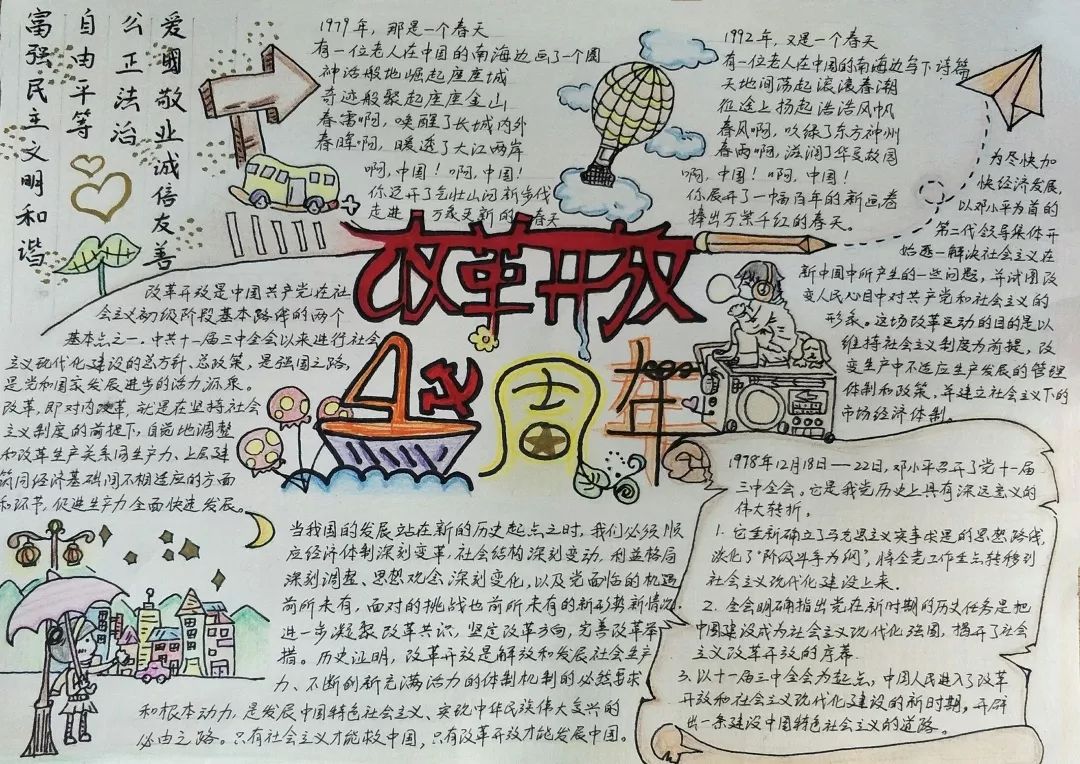 富强民主文明和谐
自由平等
公正法治
爱國敬业诚信友善
1979年，那是一个春天
有一位老人在中国的南海边画了一个圈
神话般地崛起座座城
奇迹般聚起座座金山
春雷啊，唤醒了长城内外
春晖啊，暖透了大江两岸
啊，中国！啊，中国！
你迈开了气壮山河新步伐
走进 万象更新的 春天
1992年，又是一个春天
有一位老人在中国的南海边写下诗篇
天地间荡起滚滚春潮
征途上扬起浩浩风帆
春风啊，吹绿了东方神州
春雨啊，滋润了华夏故园
啊，中国！啊，中国！
你展开了一幅百年的新画卷
捧出万紫千红的春天。
为尽快加
快经济发展，
以邓小平为首的
第二代领导集体开
始逐一解决社会主义在
新中国中所产生的一些问题，并试图改
变人民心目中对共产党和社会主义的
形象。这场改革运动的目的是以
维持社会主义制度为前提，改
变生产中不适应生产发展的管理
体制和政策，并建立社会主义下的
市场经济体制。
改革开放
40周年
改革开放是中国共产党在社
会主义初级阶段基本路线的两个
基本点之一。中共十一届三中全会以来进行社会
主义现代化建设的总方针、总政策，是强国之路，
是党和国家发展进步的活力源泉。
改革，即对内改革，就是在坚持社会
主义制度的前提下，自觉地调整
和改革生产关系同生产力、上层建
筑同经济基础间不相适应的方面
和环节，促进生产力全面快速发展。
当我国的发展站在新的历史起点之时，我们必须顺
应经济体制深刻变革，社会结构深刻变动，利益格局
深刻调整、思想观念深刻变化，以及党面临的机遇
前所未有，面对的挑战也前所未有的新形势新情况，
进一步凝聚改革共识，坚定改革方向，完善改革举
措。历史证明，改革开放是解放和发展社会生产
力、不断创新充满活力的体制机制的必然要求
和根本动力，是发展中国特色社会主义、实现中华民族伟大复兴的
必由之路。只有社会主义才能救中国，只有改革开放才能发展中国。
1978年12月18日—22日，邓小平召开了党十一届
三中全会。它是我党历史上具有深远意义的
伟大转折。
1. 它重新确立了马克思主义实事求是的思想路线，
淡化了"阶级斗争为纲"，将全党工作重点转移到
社会主义现代化建设上来.
2. 全会明确指出党在新时期的历史任务是把
中国建设成为社会主义现代化强国，揭开了社会
主义改革开放的序幕.
3. 以十一届三中全会为起点，中国人民进入了改革
开放和社会主义现代化建设的新时期。开辟
出一条建设中国特色社会主义的道路。